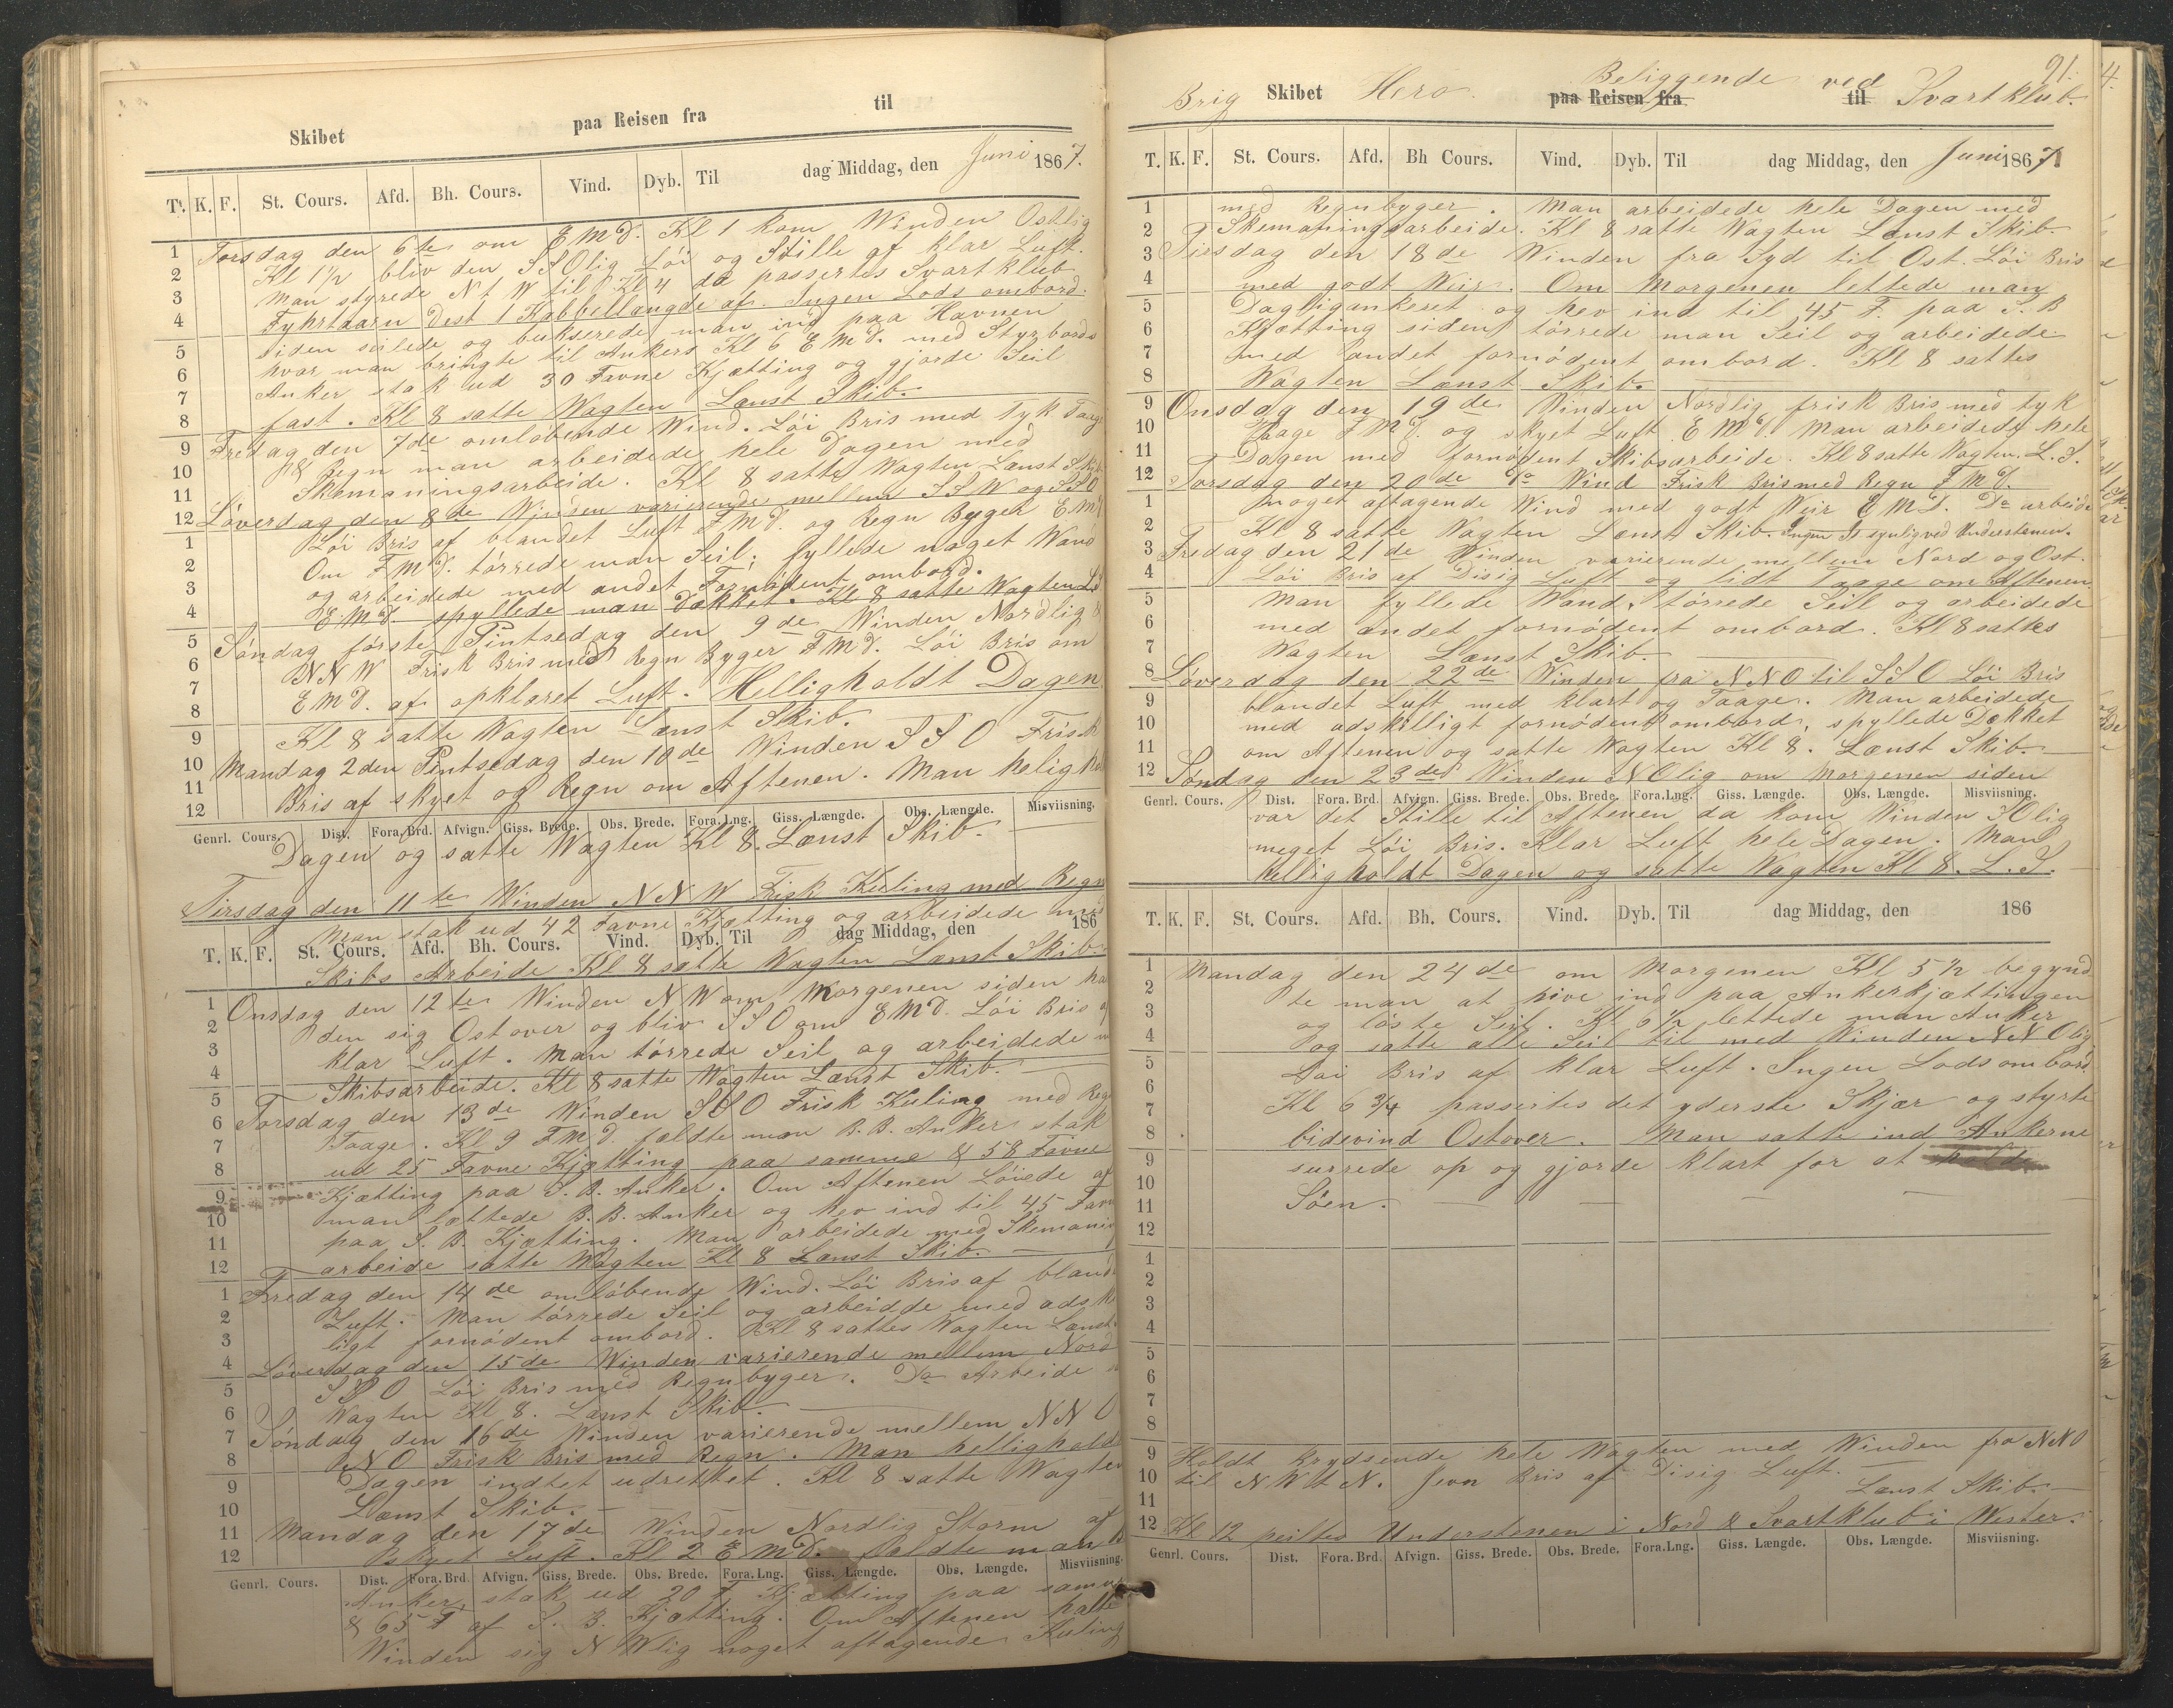 Skibet paa Reisen fra til
T. K. F. St. Cours. Afd. Bh. Cours. Vind. Dyb. Til dag Middag, den Juni 1867.
Torsdag den 6te om EMd. Kl 1 kom Winden Ostlig
Kl 1½ bliv den SSOlig Löi og Stille af klar Luft.
Man styrede N t W til Kl 4 da passertes Svartklub
Fyhrtaarn Dest 1 Kabbellængde af. Ingen Lods ombord.
siden seilede og bukserede man ind paa Havnen
hvor man bringte til Ankers Kl 6 EMd. med Styrbords
Anker stak ud 30 Favne Kjætting og gjorde Seil
fast. Kl 8 satte Wagten Lænst Skib.
Fredag den 7de omløbende Wind. Löi Bris med Tyk Taage
& Regn man arbeidede hele Dagen med
Skemaningsarbeide. Kl 8 satte Wagten Lænst Skib
Löverdag den 8de Winden varierende mellem SSW og SSO
Löi Bris af blandet Luft FMd. og Regn Byger EMd
Om FMd. törrede man Seil; fyllede noget Wand
og arbeidede med andet Fornødent ombord.
EMd. spyllede man Dækket. Kl 8 satte Wagten LS
Søndag første Pintsedag den 9de Winden Nordlig &
NNW Frisk Bris med Regn Byger FMd. Löi Bris om
EMd. af opklaret Luft. Helligholdt Dagen
Kl 8 satte Wagten Lænst Skib.
Mandag 2den Pintsedag den 10de Winden SSO Frisk
Bris af skyet og Regn om Aftenen. Man helighol
Genrl. Cours. Dist. Fora. Brd. Afvign. Giss. Brede. Obs. Brede. Fora. Lng. Giss. Længde. Obs. Længde. Misviisning.
Dagen og satte Wagten Kl 8. Lænst Skib.
Tirsdag den 11te Winden NNW Frisk Kuling med Regn
Man stak ud 42 Favne Kjætting og arbeidede med
T. K. F. St. Cours. Afd. Bh. Cours. Vind. Dyb. Til dag Middag, den 186
Skibs Arbeide Kl 8 satte Wagten Lænst Skib.
Onsdag den 12te Winden NW om Morgenen siden ha
den sig Ostover og bliv SSO om EMd. Löi Bris af
klar Luft. Man törrede Seil og arbeidede m
Skibsarbeide. Kl 8 satte Wagten Lænst Skib.
Torsdag den 13de Winden SSO Frisk Kuling med Reg
Taage. Kl 9 FMd. fældte man B.B. Anker stak
ud 25 Favne Kjætting paa samme & 58 Favne
Kjætting paa S.B. Anker. Om Aftenen Löiede af
man lettede B.B. Anker og hev ind til 45 Favn
paa S.B. Kjætting. Man arbeidede med Skemanin
arbeide satte Wagten Kl 8 Lænst Skib.
Fredag den 14de omløbende Wind. Löi Bris af bland
Luft. Man törrede Seil og arbeidde med adskil
ligt fornødent ombord. Kl 8 sattes Wagten Lænst
Löverdag den 15de Winden varierende mellem Nord
SSO Löi Bris med Regnbyger. Do Arbeide
Wagten Kl 8. Lænst Skib.
Söndag den 16de Winden varierende mellem NNO
NO Frisk Bris med Regn. Man helligholdt
Dagen indtet udrettet. Kl 8 satte Wagten
Lænst Skib.
Mandag den 17de Winden Nordlig Storm af
skyet Luft. Kl 2 EMd. fældte man
Genrl. Cours. Dist. Fora. Brd. Afvign. Giss. Brede. Obs. Brede. Fora. Lng. Giss. Længde. Obs. Længde. Misviisning.
Anker stak ud 20 F Kjætting paa samme
& 65 F af S.B. Kjætting. Om Aftenen halte
Winden sig NWlig noget aftagende Kuling
91.
Brig Skibet Hero. paa Reisen fra Beliggende ved til Svartklub.
T. K. F. St. Cours. Afd. Bh Cours. Vind. Dyb. Til dag Middag, den Juni 1867
med Regnbyger. Man arbeidede hele Dagen med
Skemaningsarbeide. Kl 8 satte Wagten Lænst Skib.
Tirsdag den 18de Winden fra Syd til Ost. Löi Bris
med godt Weir. Om Morgenen lettede man
Dagligankeret og hev ind til 45 F. paa S.B
Kjætting siden törrede man Seil og arbeidede
med andet fornødent ombord. Kl 8 sattes
Wagten Lænst Skib.
Onsdag den 19de Winden Nordlig frisk Bris med tyk
Taage FMd. og skyet Luft EMd. Man arbeidede hele
Dagen med fornødent Skibsarbeide. Kl 8 satte Wagten. L.S.
Torsdag den 20de Do Wind Frisk Bris med Regn FMd.
noget aftagende Wind med godt Weir EMd. Do arbeide
Kl 8 satte Wagten Lænst Skib. Ingen Is synlig ved Understenen.
Fredag den 21de Winden varierende mellem Nord og Ost.
Löi Bris af Disig Luft og lidt Taage om Aftenen
Man fyllede Wand, törrede Seil og arbeidede
med andet fornødent ombord. Kl 8 sattes
Wagten Lænst Skib.
Löverdag den 22de Winden fra NNO til SSO Löi Bris
blandet Luft med klart og Taage. Man arbeidede
med adskilligt fornødent ombord, spyllede Dækket
om Aftenen og satte Wagten Kl 8. Lænst Skib.
Søndag den 23de Winden NOlig om Morgenen siden
Genrl. Cours. Dist. Fora. Brd. Afvign. Giss. Brede. Obs. Brede. Fora. Lng. Giss. Længde. Obs. Længde. Misviisning.
var det Stille til Aftenen da kom Winden SOlig
meget Löi Bris. Klar Luft hele Dagen. Man
helligholdt Dagen og satte Wagten Kl 8. L.S.
T. K. F. St. Cours. Afd. Bh. Cours. Vind. Dyb. Til dag Middag, den 186
Mandag den 24de om Morgenen Kl 5½ begynd
te man at hive ind paa Ankerkjættingen
og løste Seil. Kl 6½ lettede man Anker
og satte alle Seil til med Winden NNOlig
Löi Bris af klar Luft. Ingen Lods ombord
Kl 6¾ passertes det yderste Skjær og styrte
bidevind Ostover. Man satte ind Ankerne
surrede op og gjorde klart for at holde
Söen.
Holdt krydsende hele Wagten med Winden fra NNO
til NWtN. Jevn Bris af Disig Luft.
Lænst Skib.
Kl 12 peiltes Understenen i Nord & Svartklub i Wester.
Genrl. Cours. Dist. Fora. Brd. Afvign. Giss. Brede. Obs. Brede. Fora. Lng. Giss. Længde. Obs. Længde. Misviisning.